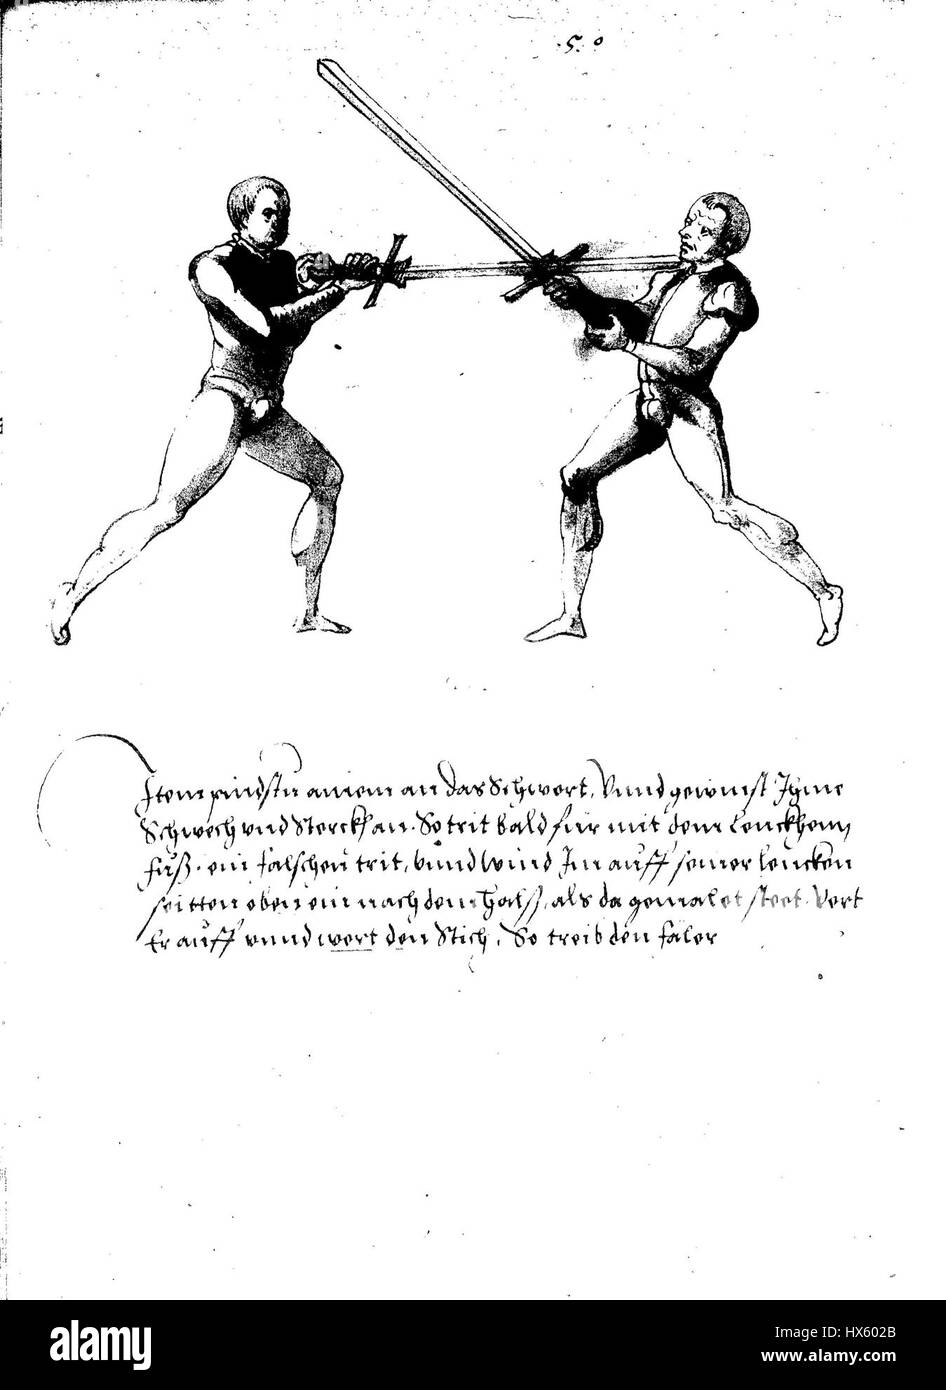 5. 0
Item pindstu aniem an das Schwert, Vnnd gewinst Ihme
Schwech vnd Sterckh an. So trit bald für mit dem Lenckhenn
fuß. ein falschen trit, vnnd wind Im auff seiner lencken
seitten oben ein nach dem Halß, als da gemalet steet. Vert
Er auff vnnd wert den Stich, So treib den faler
alamy
Image ID: HX602B
www.alamy.com